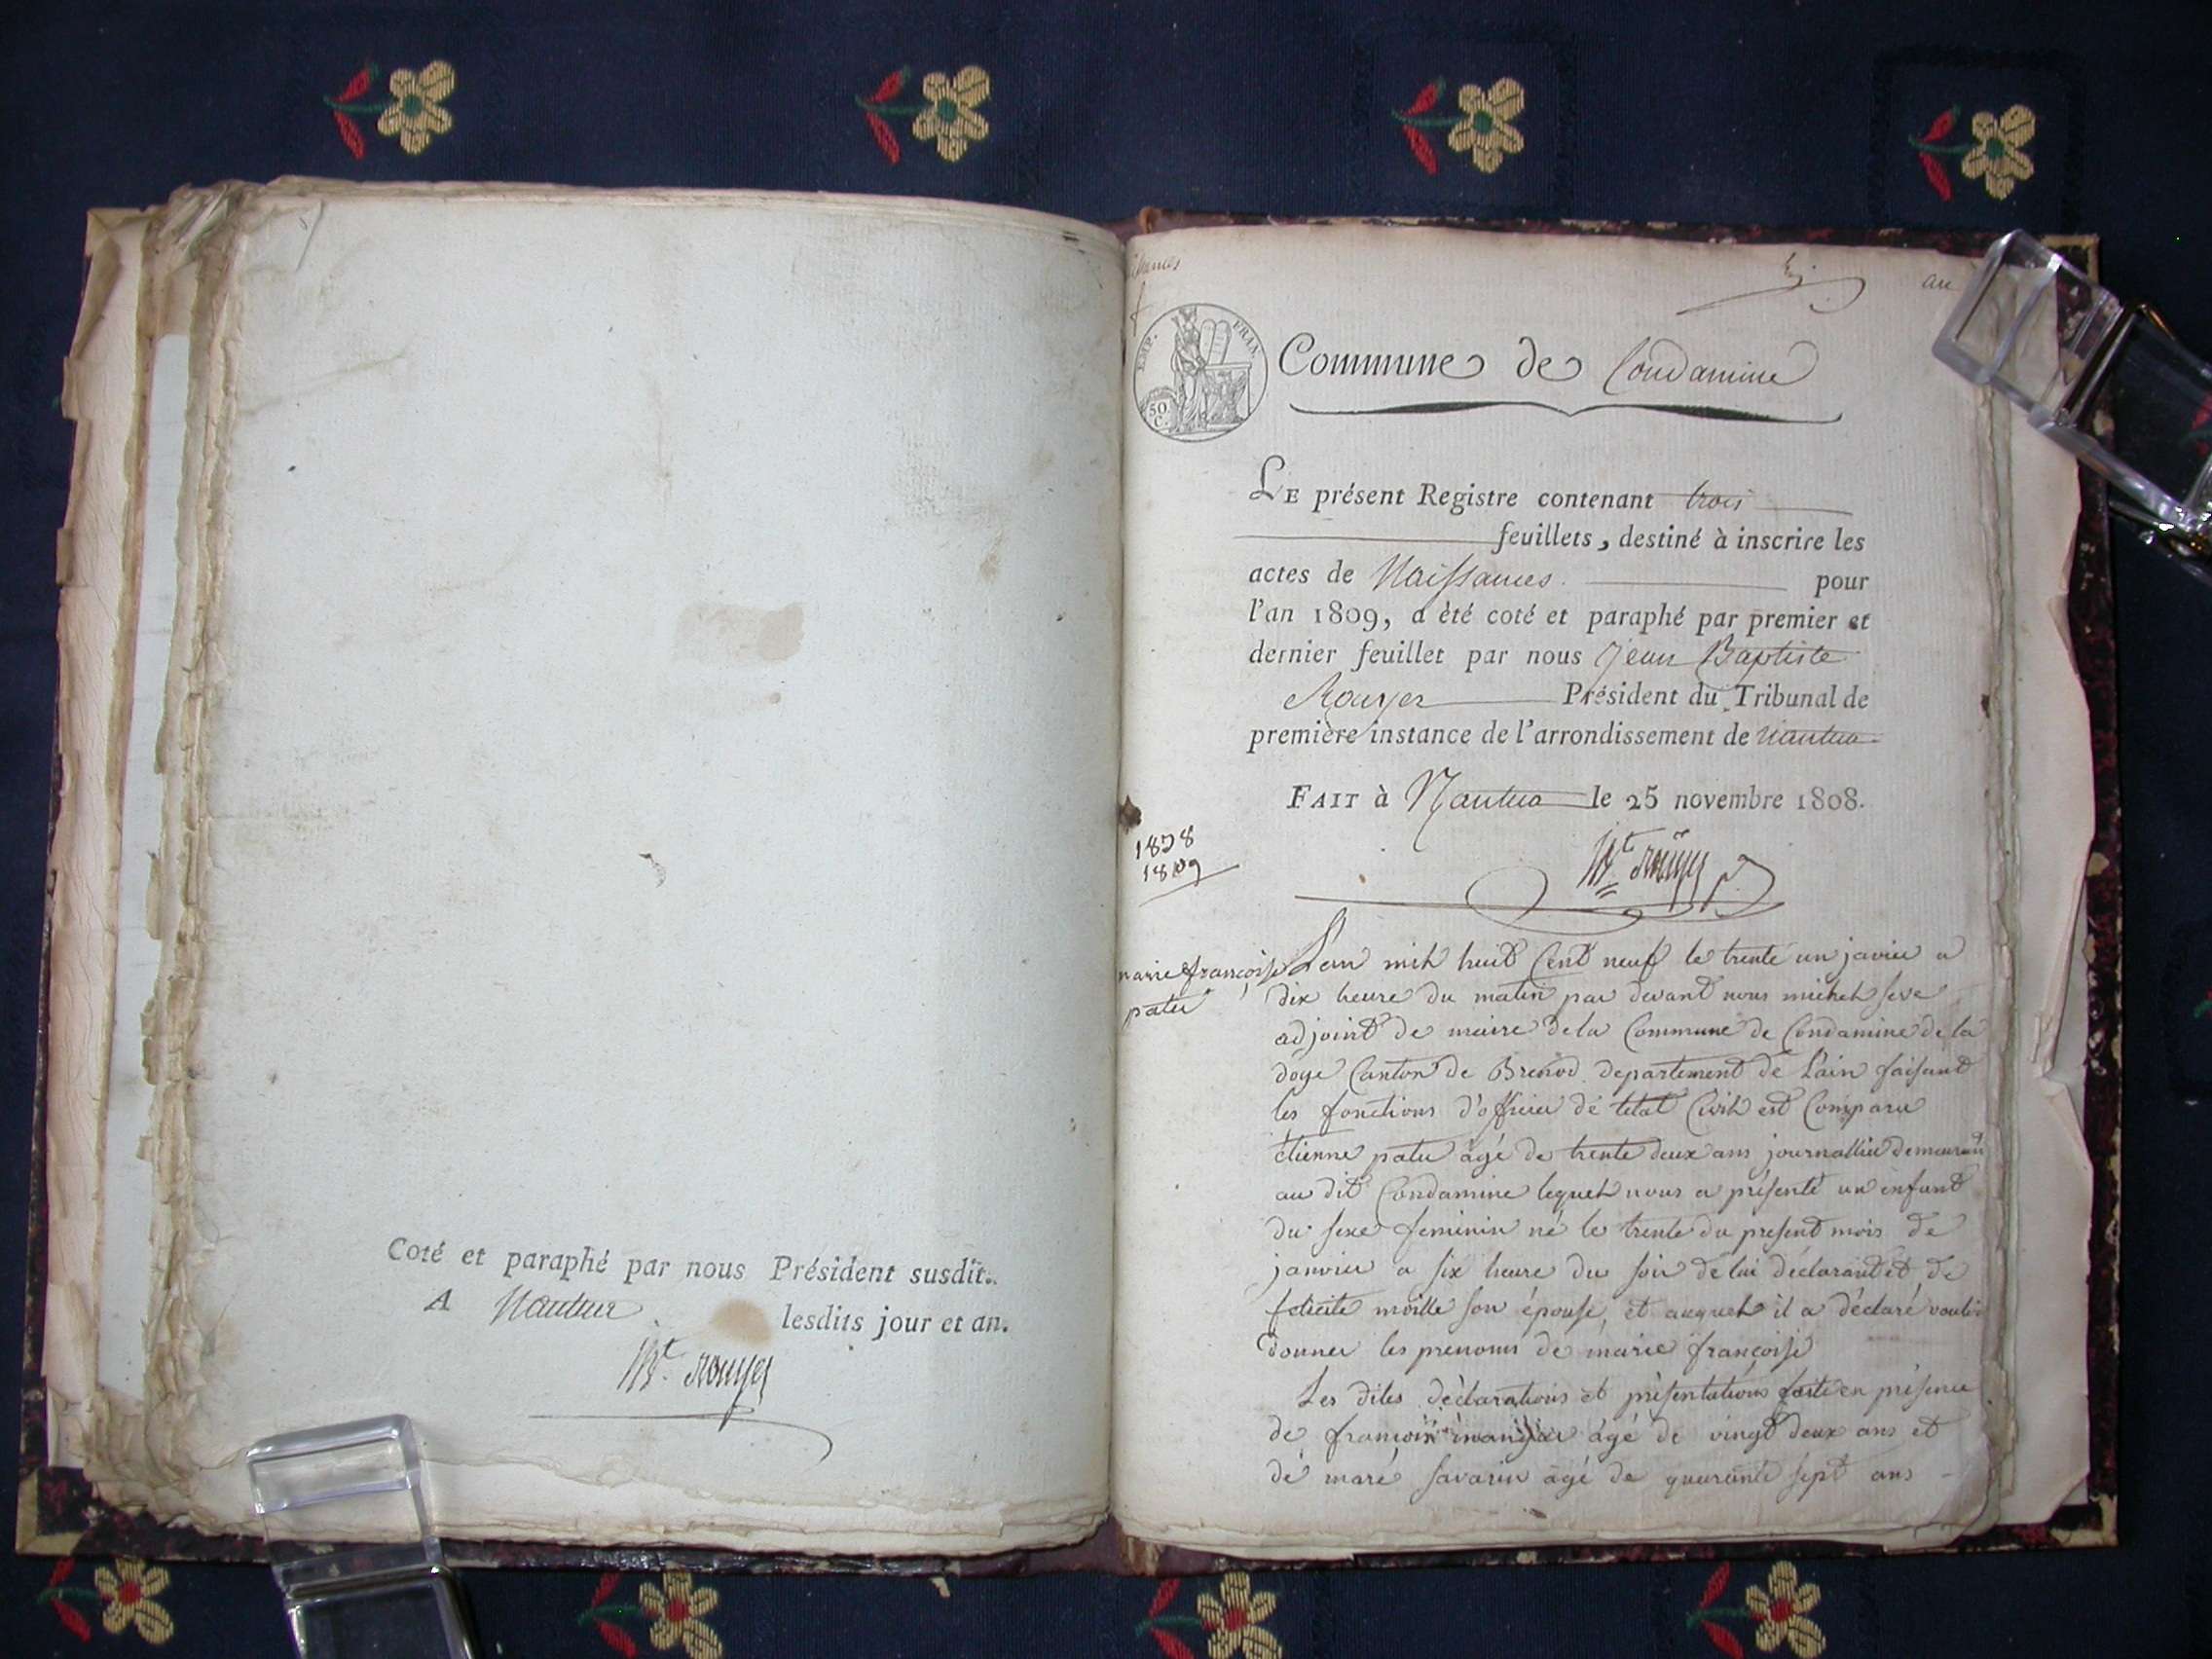 Coté et paraphé par nous Président susdit.
A Nantua lesdits jour et an.
Bte. Rouyer
EMP. FRAN.
50 C.
Commune de Condamine
LE présent Registre contenant trois
feuillets, destiné à inscrire les
actes de Naissances. pour
l'an 1809, a été coté et paraphé par premier et
dernier feuillet par nous Jean Baptiste
Rouyer Président du Tribunal de
première instance de l'arrondissement de Nantua
FAIT à Nantua le 25 novembre 1808.
Bte Rouyer
1809
marie françoise
patu
L'an mil huit Cent neuf le trente un javier a
dix heure du matin par devant nous michel seve
adjoint de maire de la Commune de Condamine de la
doye Canton de Brenod departement de L'ain faisant
les fonctions d'officier de letat Civil est Comparu
étienne patu âgé de trente deux ans journallier demeurant
au dit Condamine lequel nous a présenté un enfant
du sexe feminin né le trente du present mois de
janvier a six heure du soir de lui déclarant et de
felicite moille son épouse, et auquel il a déclaré vouloir
donner les prenoms de marie françoise
Les dites déclarations et présentations faite en présence
de françois âgé de vingt deux ans et
de maré savarin âgé de quarante sept ans